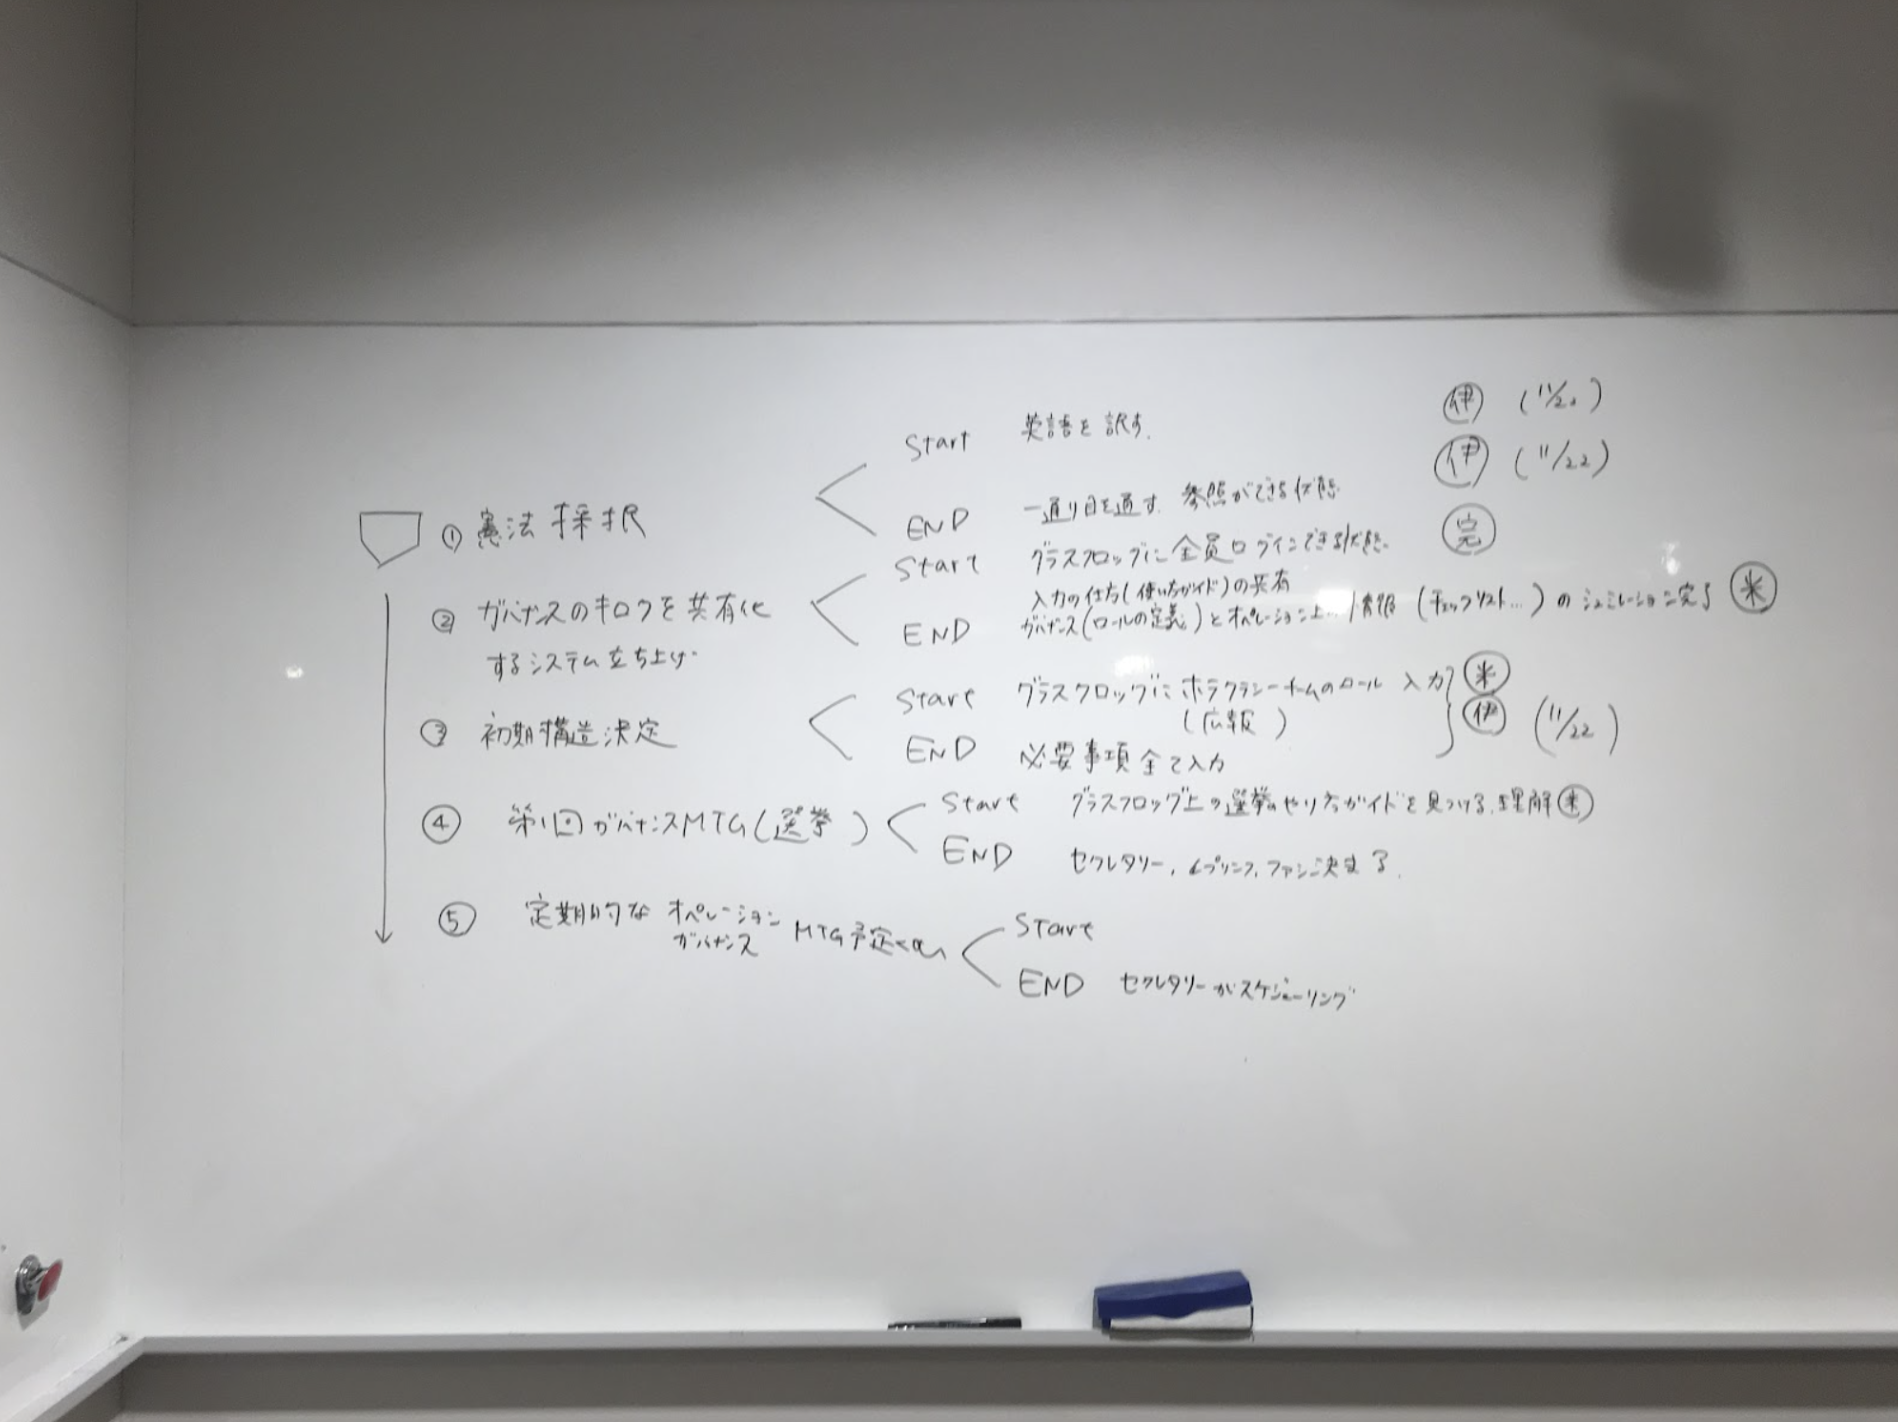 Start 英語を訳す. 伊 (11/20)
① 憲法採択
END 一通り目を通す. 参照ができる状態 伊 (11/22)
Start グラスフロッグに全員ログインできる状態. 完
② ガバナンスのキロクを共有化
するシステム立ち上げ.
入力の仕方(使い方ガイド)の共有
END ガバナンス(ロールの定義)とオペレーション上の情報(チェックリスト...)のシュミレーション完了 米
③ 初期構造決定
Start グラスフロッグにホラクラシーチームのロール 入力 米
(広報) 伊 (11/22)
END 必要事項全て入力
④ 第1回ガバナンスMTG(選挙)
Start グラスフロッグ上の選挙のやり方ガイドを見つける.理解 米
END セクレタリー, レプリンク, ファシ決まる.
⑤ 定期的な オペレーション
ガバナンス MTG予定
Start
END セクレタリーがスケジューリング